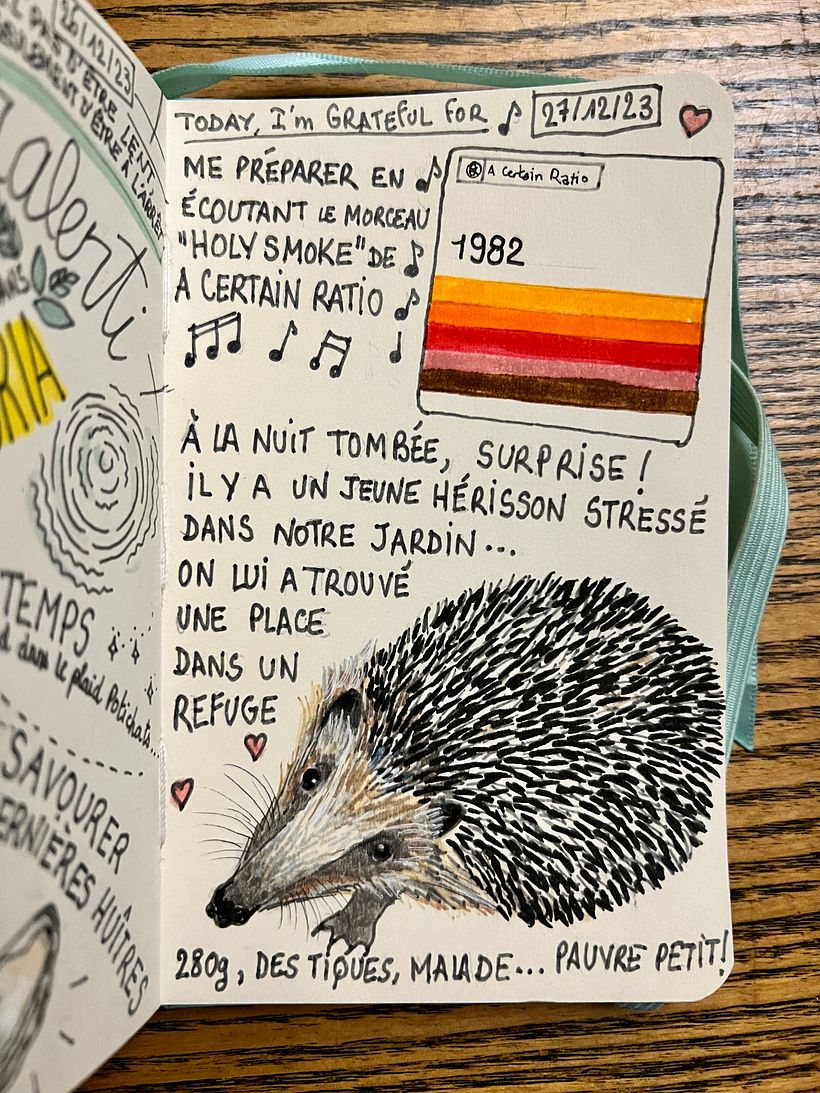 26/12/23
PAS D'ÊTRE LENT,
SEULEMENT D'ÊTRE À L'ARRÊT
alenti
ANS
RIA
TEMPS
dans le plaid Potichats...
SAVOURER
DERNIÈRES HUÎTRES
TODAY, I'm GRATEFUL FOR 27/12/23
ME PRÉPARER EN
ÉCOUTANT LE MORCEAU
"HOLY SMOKE" DE
A CERTAIN RATIO
® A Certain Ratio
1982
À LA NUIT TOMBÉE, SURPRISE !
IL Y A UN JEUNE HÉRISSON STRESSÉ
DANS NOTRE JARDIN...
ON LUI A TROUVÉ
UNE PLACE
DANS UN
REFUGE
280g, DES TIQUES, MALADE... PAUVRE PETIT!